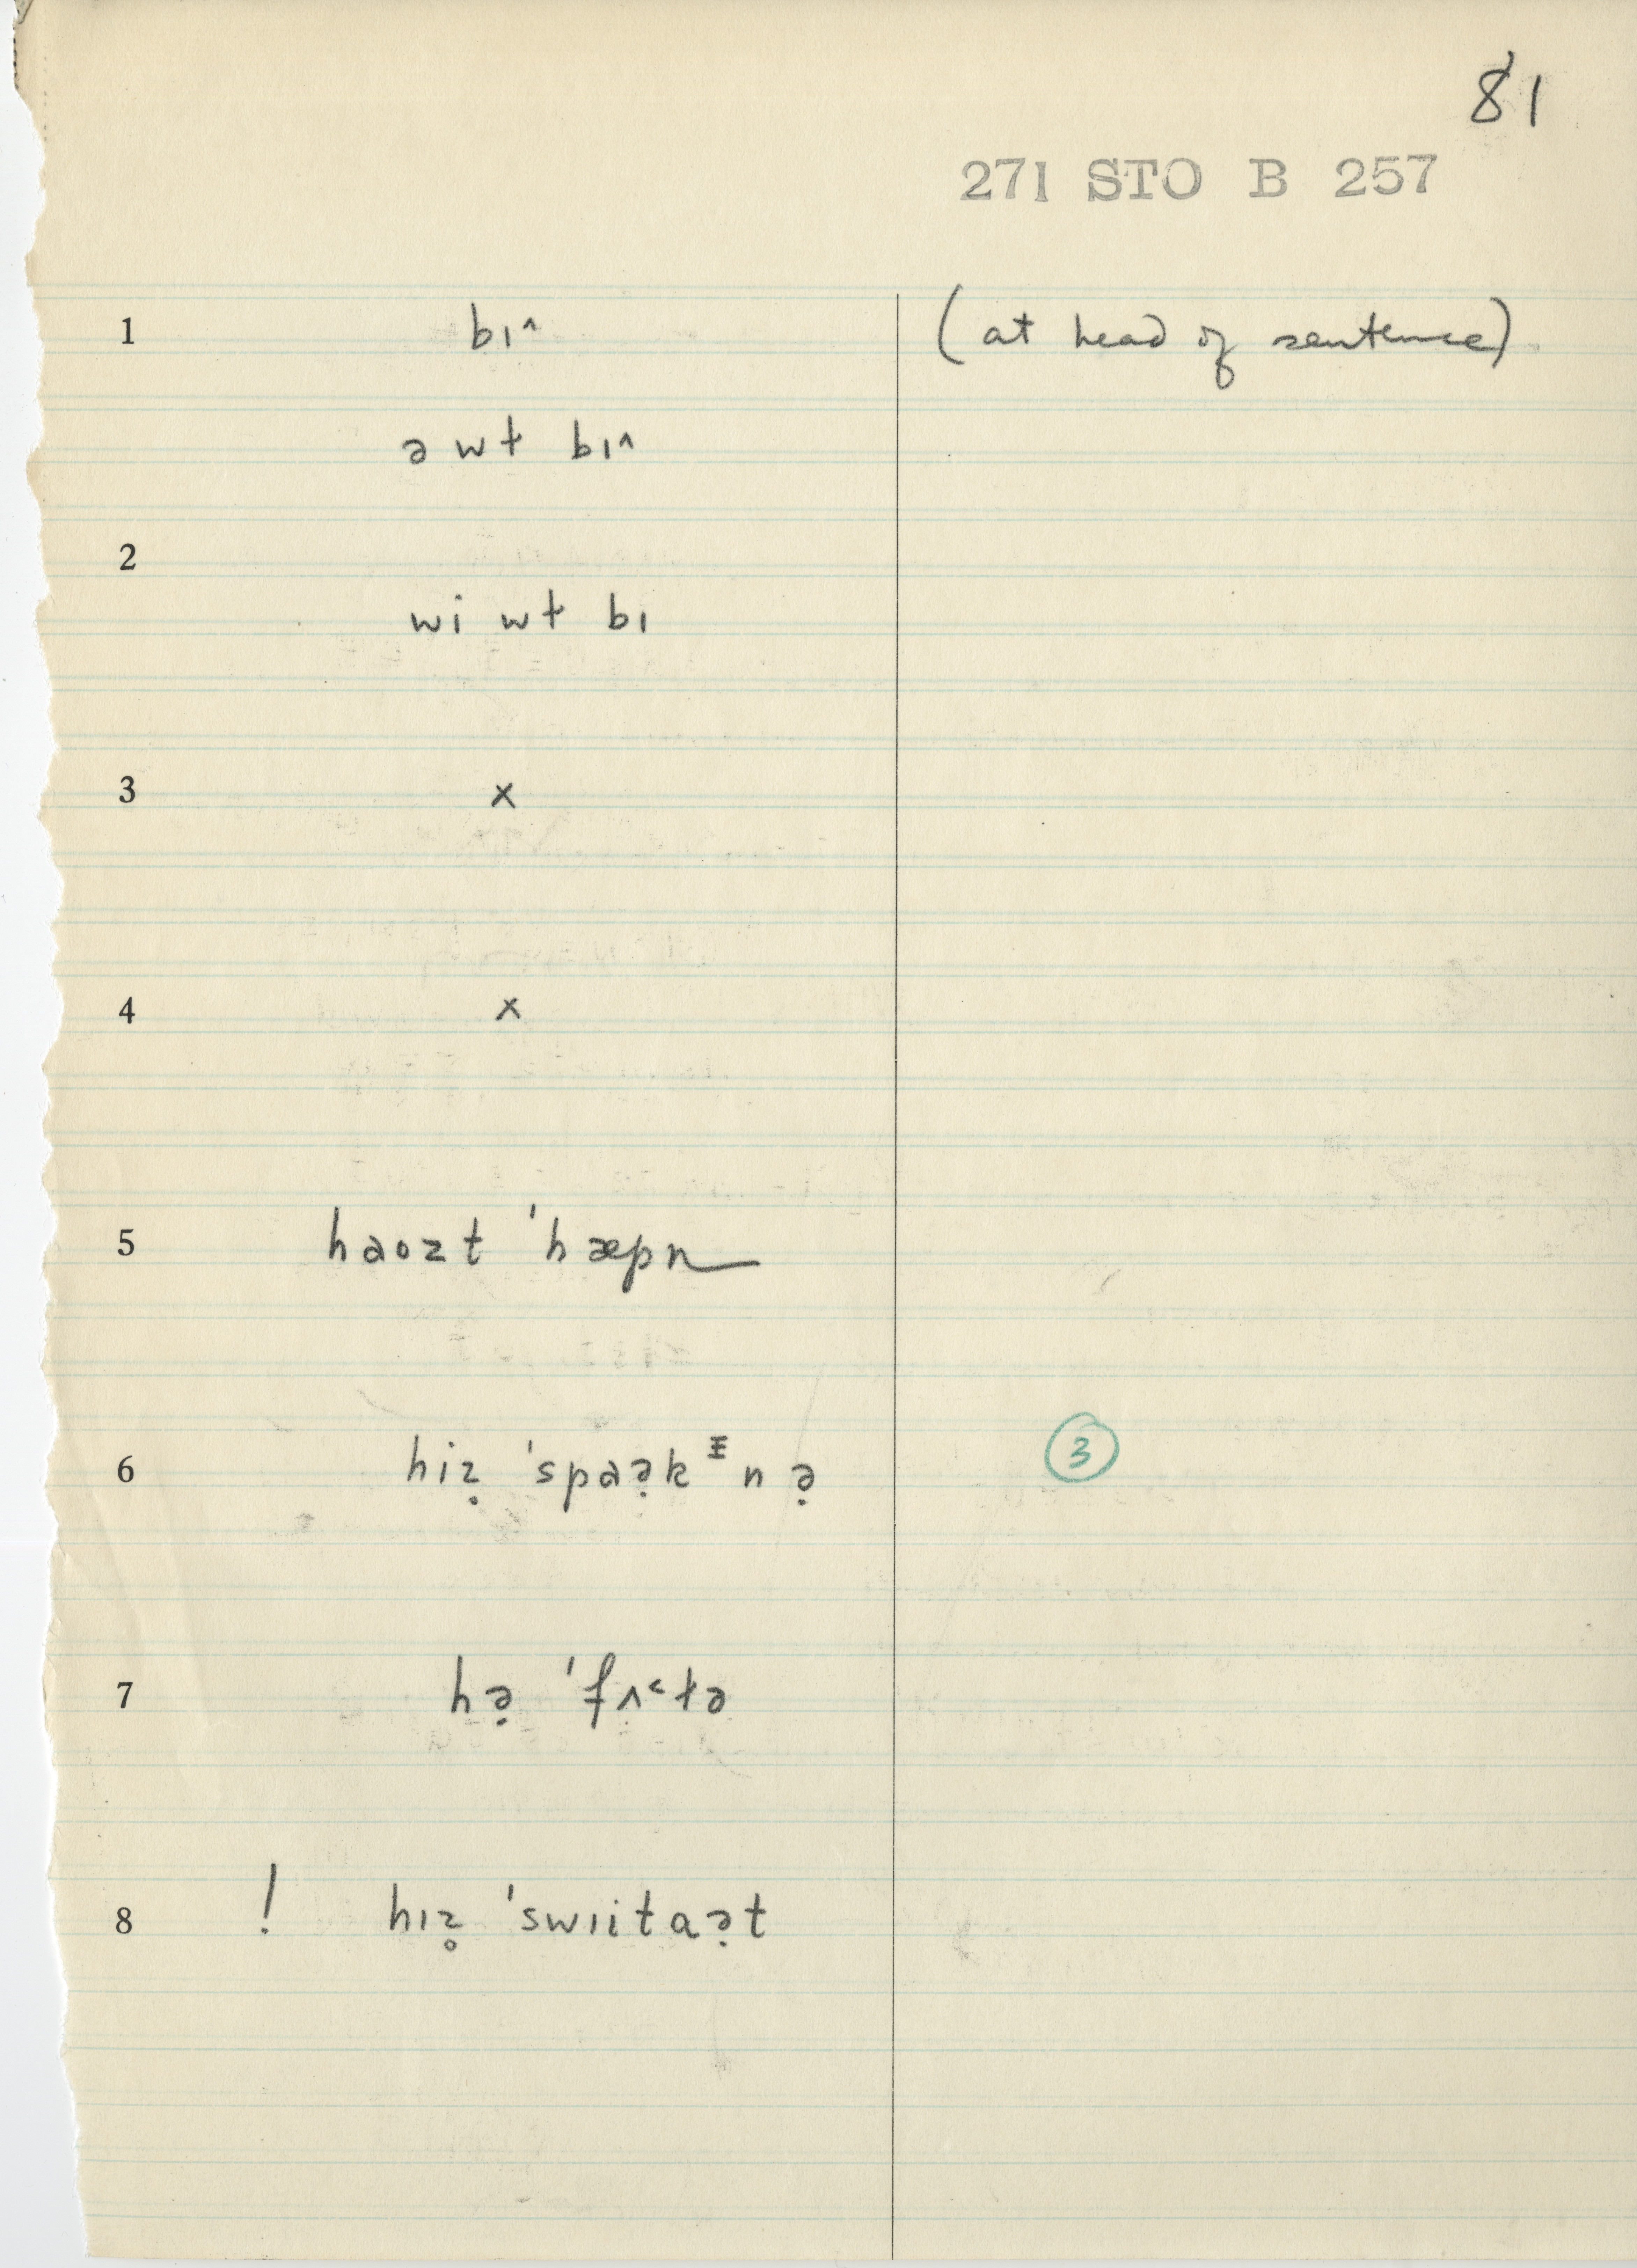 81
271 STO B 257
1 bɪ^ (at head of sentence)
ə wɫ bɪ^
2
wi wɫ bɪ
3 x
4 x
5 haozt 'hæpn
6 hiẓ 'spaə̣kᵻnə̣ 3
7 hə̣ 'fʌ˂ɫə
8 ! hɪz̥ 'swɪitaə̣t